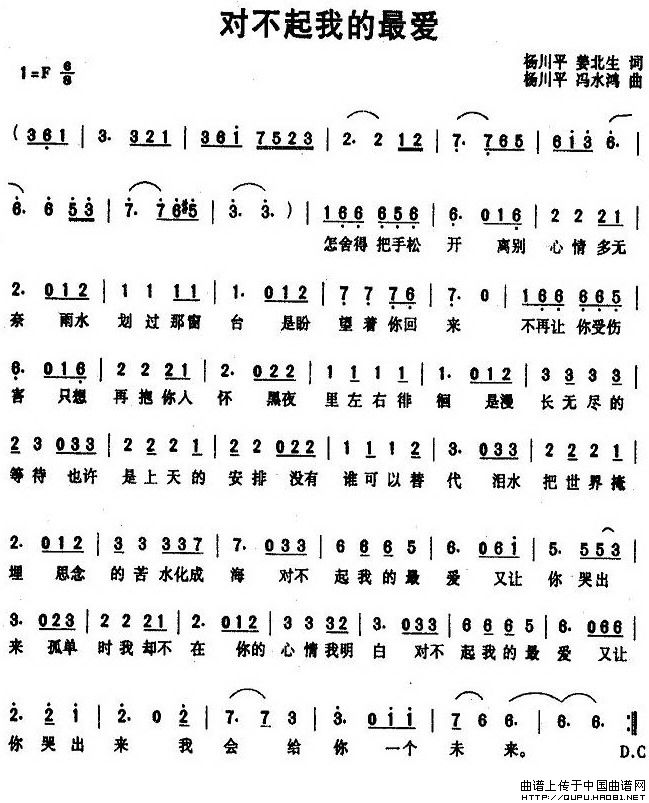 对不起我的最爱
杨川平 姜北生 词
1=F 6/8
杨川平 冯水鸿 曲
( 361 | 3. 321 | 361 7523 | 2. 2 12 | 7. 765 | 613 6. |
6. 6 53 | 7. 76#5 | 3. 3. ) | 166 656 | 6. 016 | 2 2 21 |
怎舍得 把手松 开 离别 心 情 多无
2. 012 | 1 1 11 | 1. 012 | 7 7 76 | 7. 0 | 166 665 |
奈 雨水 划 过 那窗 台 是盼 望 着 你回 来 不再让 你受伤
6. 016 | 2 2 21 | 2. 022 | 1 1 1 1 | 1. 012 | 3 3 3 3 |
害 只想 再 抱 你人 怀 黑夜 里 左 右 徘 徊 是漫 长 无 尽 的
2 3 033 | 2 2 2 1 | 2 2 022 | 1 1 1 2 | 3. 033 | 2 2 2 1 |
等 待 也许 是 上 天 的 安 排 没有 谁 可 以 替 代 泪水 把 世 界 掩
2. 012 | 3 3 337 | 7. 033 | 6 6 6 5 | 6. 061 | 5. 553 |
埋 思念 的 苦 水化成 海 对不 起 我 的 最 爱 又让 你 哭出
3. 023 | 2 2 21 | 2. 012 | 3 3 32 | 3. 033 | 6 6 6 5 | 6. 066 |
来 孤单 时 我 却不 在 你的 心 情 我明 白 对不 起 我 的 最 爱 又让
2. 2 1 | 2. 0 2 | 7. 7 3 | 3. 011 | 7 6 6. | 6. 6. :||
你 哭 出 来 我 会 给 你 一个 未 来。 D.C
曲谱上传于中国曲谱网
HTTP://QUPU.HAO81.NET